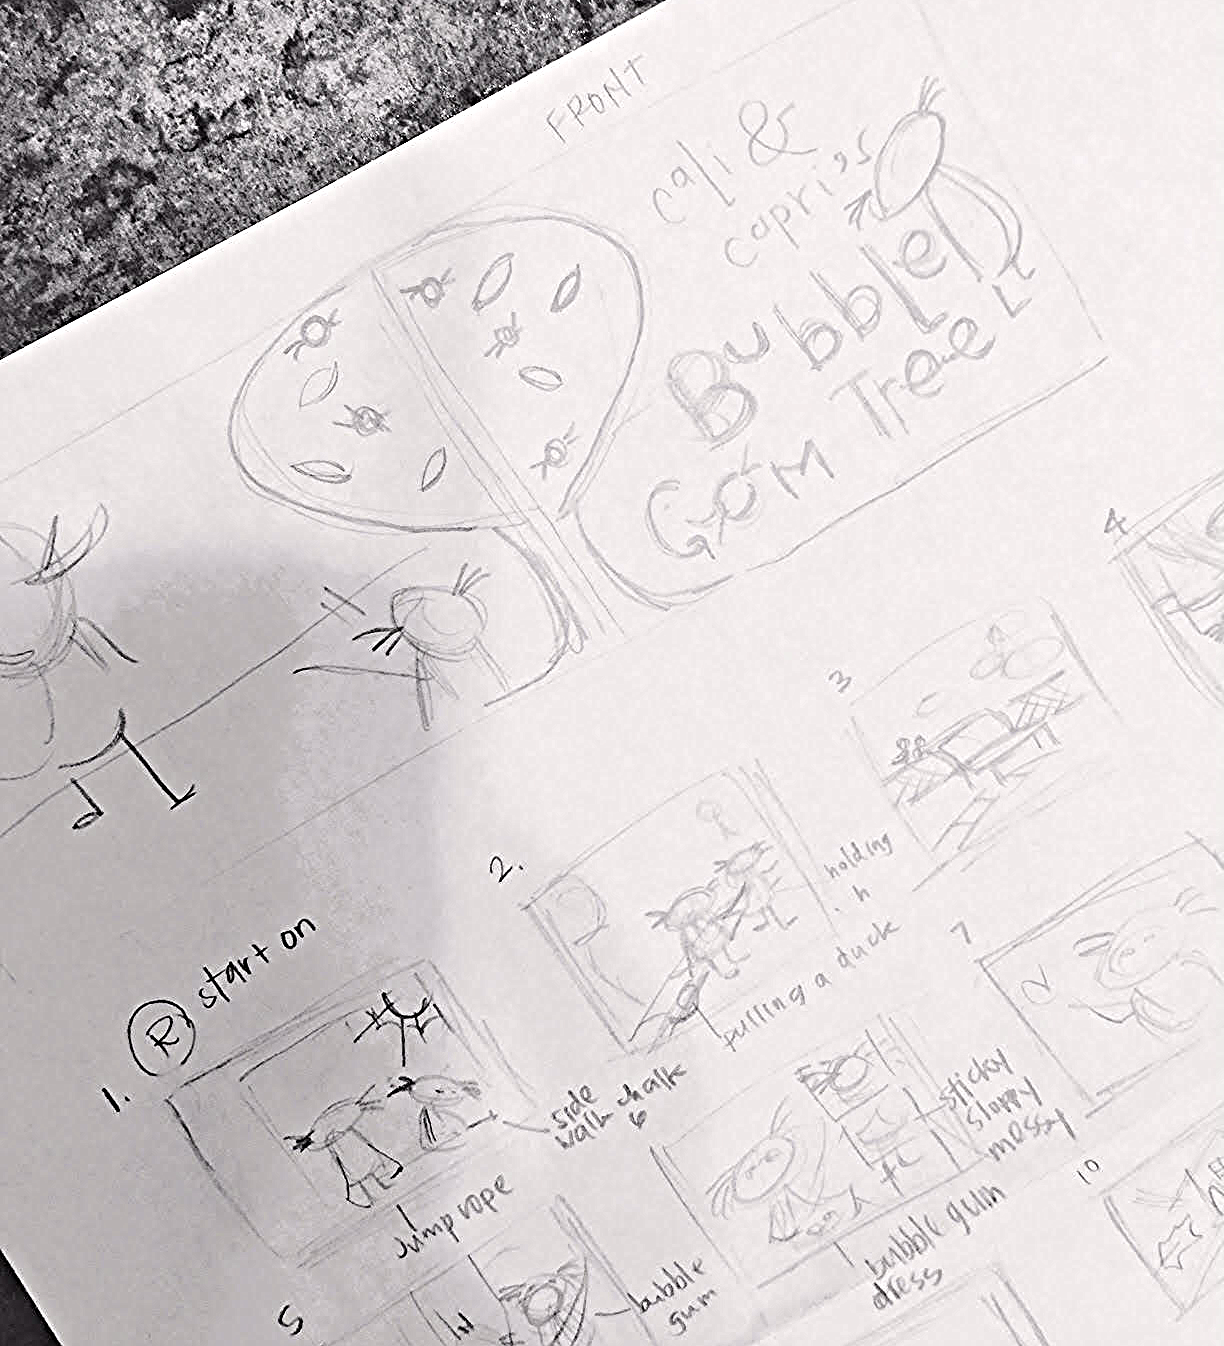 FRONT
cali &
capri's
Bubble
GUM Tree
4
3
2.
holding
pulling a duck
7
R start on
1.
side
walk chalk
sticky
sloppy
messy
10
Jump rope
bubble gum
dress
5
bubble
gum